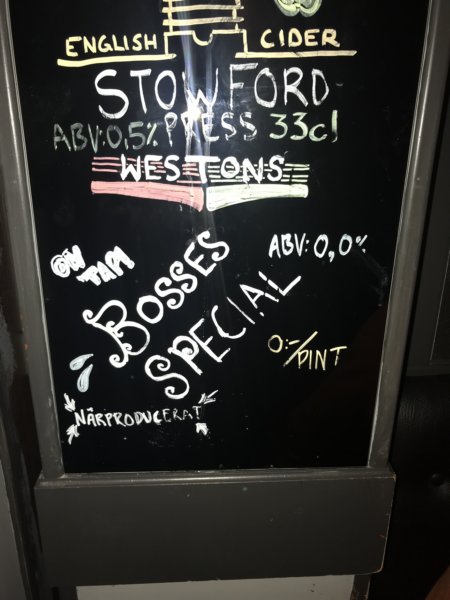 ENGLISH CIDER
STOWFORD
ABV:0,5% PRESS 33cl
WESTONS
ON
TAP!
ABV: 0,0%
BOSSES
SPECIAL
0:-/PINT
NÄRPRODUCERAT